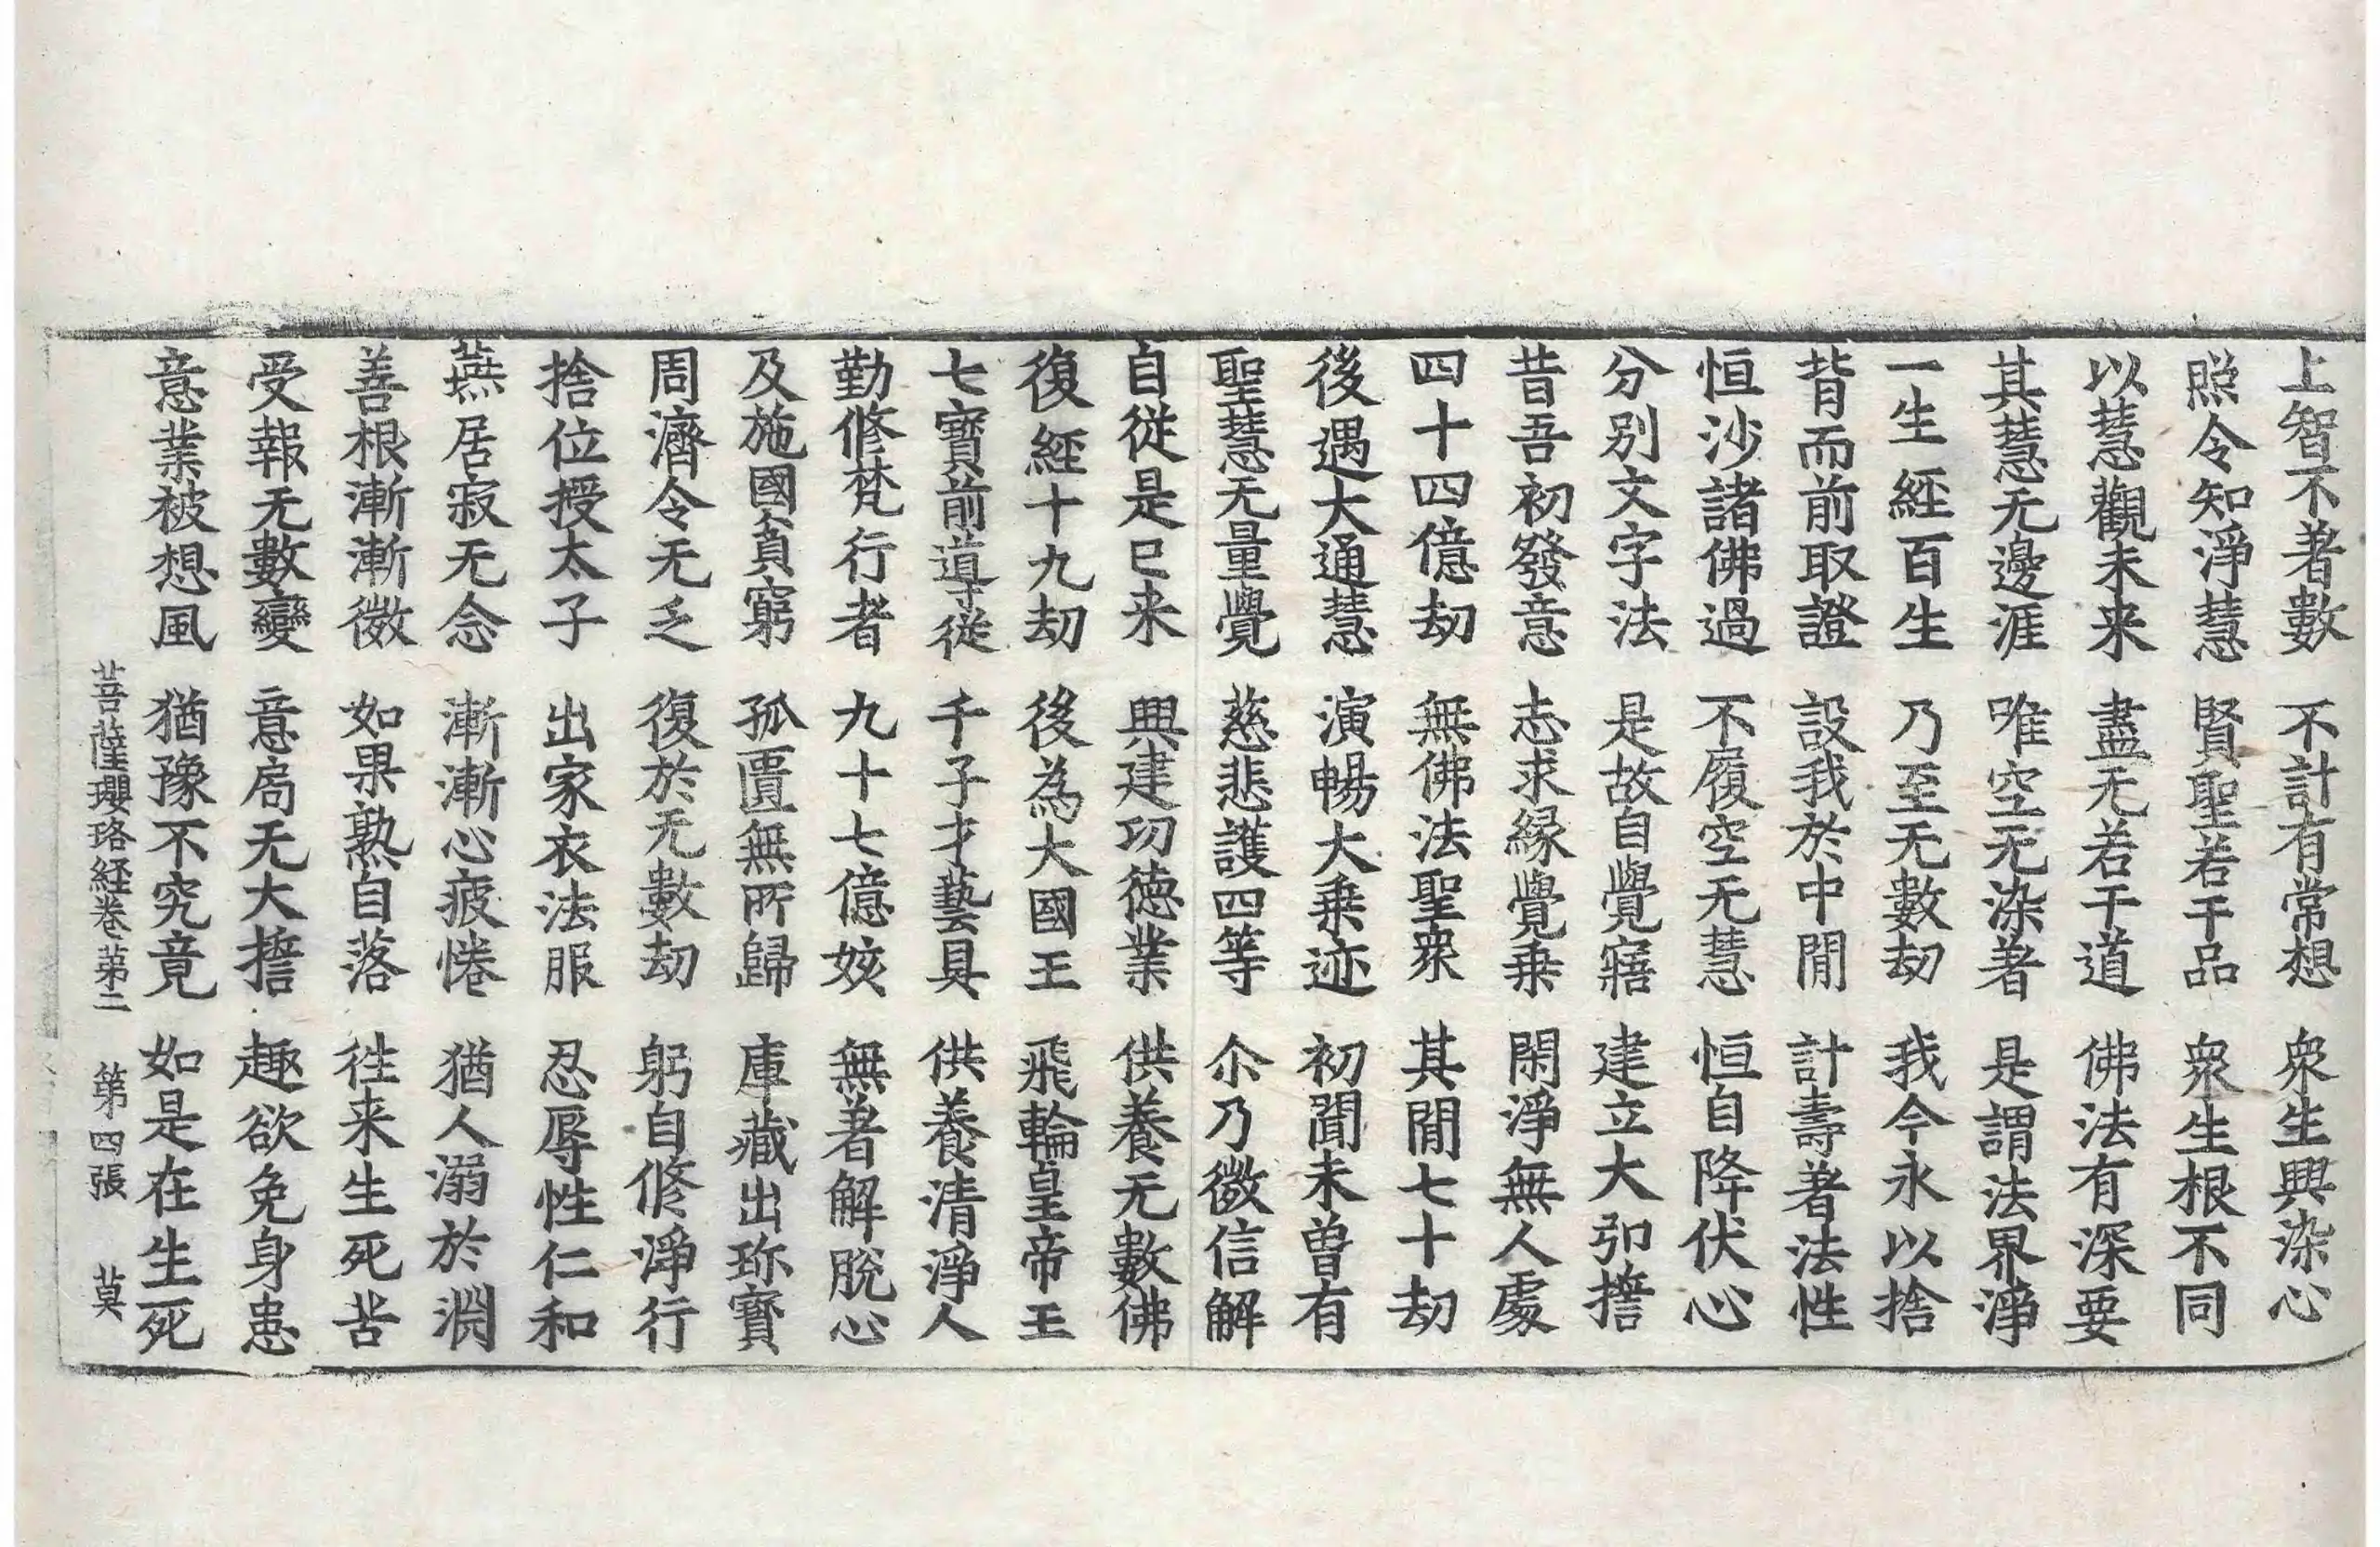 上智不著數　不計有常想　衆生興染心
照令知淨慧　賢聖若干品　衆生根不同
以慧觀未来　盡无若干道　佛法有深要
其慧无邊涯　唯空无染著　是謂法界淨
一生經百生　乃至无數劫　我今永以捨
背而前取證　設我於中閒　計壽著法性
恒沙諸佛過　不履空无慧　恒自降伏心
分別文字法　是故自覺寤　建立大弘擔
昔吾初發意　志求緣覺乗　閑淨無人處
四十四億劫　無佛法聖衆　其閒七十劫
後遇大通慧　演暢大乗迹　初聞未曽有
聖慧无量覺　慈悲護四等　尒乃微信解
自從是已来　興建功德業　供養无數佛
復經十九劫　後為大國王　飛輪皇帝王
七寳前導從　千子才藝具　供養清淨人
勤修梵行者　九十七億姟　無著解脫心
及施國貧窮　孤匱無所歸　庫藏出珎寳
周濟令无乏　復於无數劫　躬自修淨行
捨位授太子　出家衣法服　忍辱性仁和
燕居寂无念　漸漸心疲惓　猶人溺於淵
善根漸漸微　如果熟自落　徃来生死苦
受報无數變　意局无大擔　趣欲免身患
意業被想風　猶豫不究竟　如是在生死
菩薩瓔珞経卷第二　第四張　莫